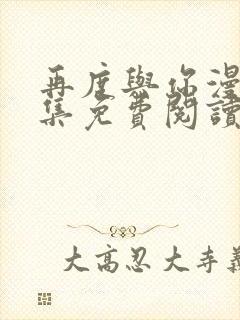 再度與你漫
集免費閱讀
大高忍大寺義